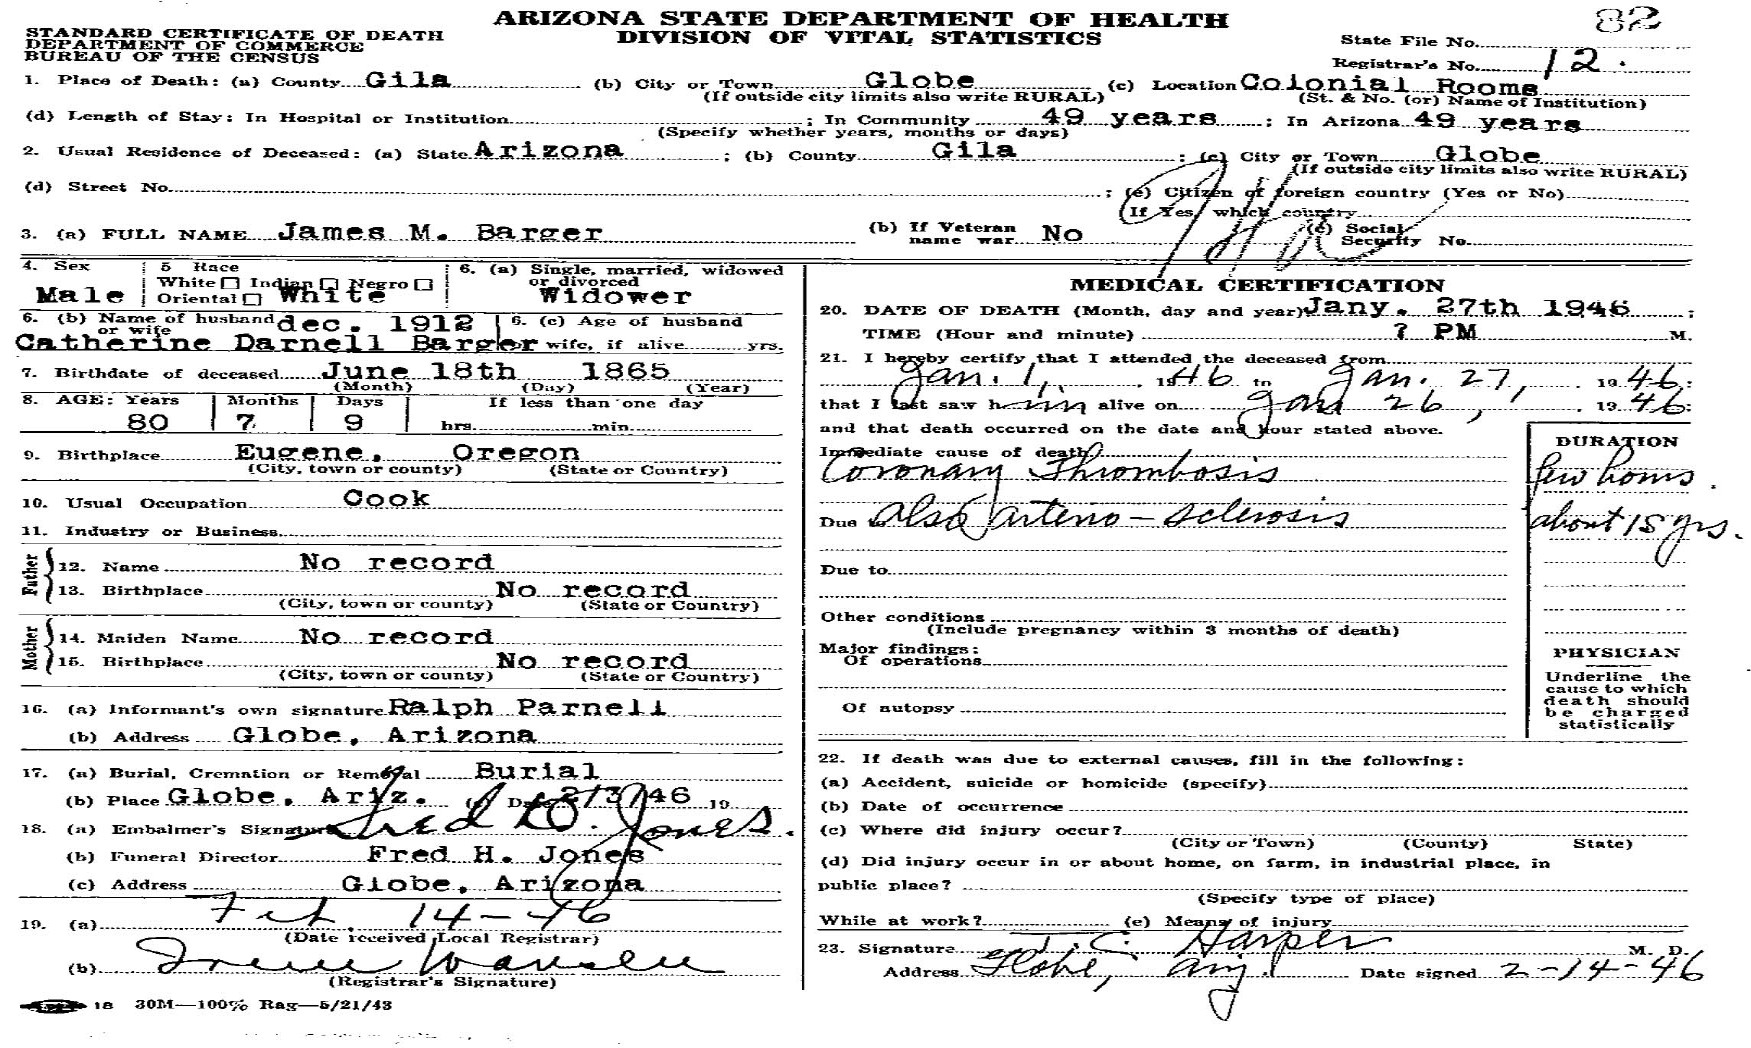 ARIZONA STATE DEPARTMENT OF HEALTH
DIVISION OF VITAL STATISTICS
STANDARD CERTIFICATE OF DEATH
DEPARTMENT OF COMMERCE
BUREAU OF THE CENSUS
82
State File No.
Registrar's No. 12.
1. Place of Death: (a) County Gila (b) City or Town Globe (c) Location Colonial Rooms
(If outside city limits also write RURAL) (St. & No. (or) Name of Institution)
(d) Length of Stay: In Hospital or Institution ; In Community 49 years ; In Arizona 49 years
(Specify whether years, months or days)
2. Usual Residence of Deceased: (a) State Arizona ; (b) County Gila ; (c) City or Town Globe
(If outside city limits also write RURAL)
(d) Street No. ; (e) Citizen of foreign country (Yes or No)
(If Yes, which country
3. (a) FULL NAME James M. Barger (b) If Veteran name war No (c) Social Security No.
4. Sex Male
5 Race
White Indian Negro
Oriental White
6. (a) Single, married, widowed
or divorced
Widower
6. (b) Name of husband or wife dec. 1912
Catherine Darnell Barger
6. (c) Age of husband
or wife, if alive yrs.
7. Birthdate of deceased June 18th 1865
(Month) (Day) (Year)
8. AGE: Years Months Days If less than one day
80 7 9 hrs. min.
9. Birthplace Eugene, Oregon
(City, town or county) (State or Country)
10. Usual Occupation Cook
11. Industry or Business
Father
12. Name No record
13. Birthplace No record
(City, town or county) (State or Country)
Mother
14. Maiden Name No record
15. Birthplace No record
(City, town or county) (State or Country)
16. (a) Informant's own signature Ralph Parnell
(b) Address Globe, Arizona
17. (a) Burial, Cremation or Removal Burial
(b) Place Globe, Ariz. (c) Date 2/3/46 19
18. (a) Embalmer's Signature Fred Jones.
(b) Funeral Director Fred H. Jones
(c) Address Globe, Arizona
19. (a) Feb 14-46
(Date received Local Registrar)
(b) Irene
(Registrar's Signature)
18 30M—100% Rag—5/21/43
MEDICAL CERTIFICATION
20. DATE OF DEATH (Month, day and year) Jany. 27th 1946 ;
TIME (Hour and minute) 7 PM M.
21. I hereby certify that I attended the deceased from
Jan. 1, 1946 to Jan. 27, 1946;
that I last saw him alive on Jan 26, 1946;
and that death occurred on the date and hour stated above.
Immediate cause of death
Coronary Thrombosis
Due also arterio-sclerosis
Due to
Other conditions
(Include pregnancy within 3 months of death)
Major findings:
Of operations
Of autopsy
DURATION
few hours.
about 15 yrs.
PHYSICIAN
Underline the
cause to which
death should
be charged
statistically
22. If death was due to external causes, fill in the following:
(a) Accident, suicide or homicide (specify)
(b) Date of occurrence
(c) Where did injury occur?
(City or Town) (County) State)
(d) Did injury occur in or about home, on farm, in industrial place, in
public place?
(Specify type of place)
While at work? (e) Means of injury
23. Signature T. C. Harper M. D.
Address Globe, Ariz. Date signed 2-14-46